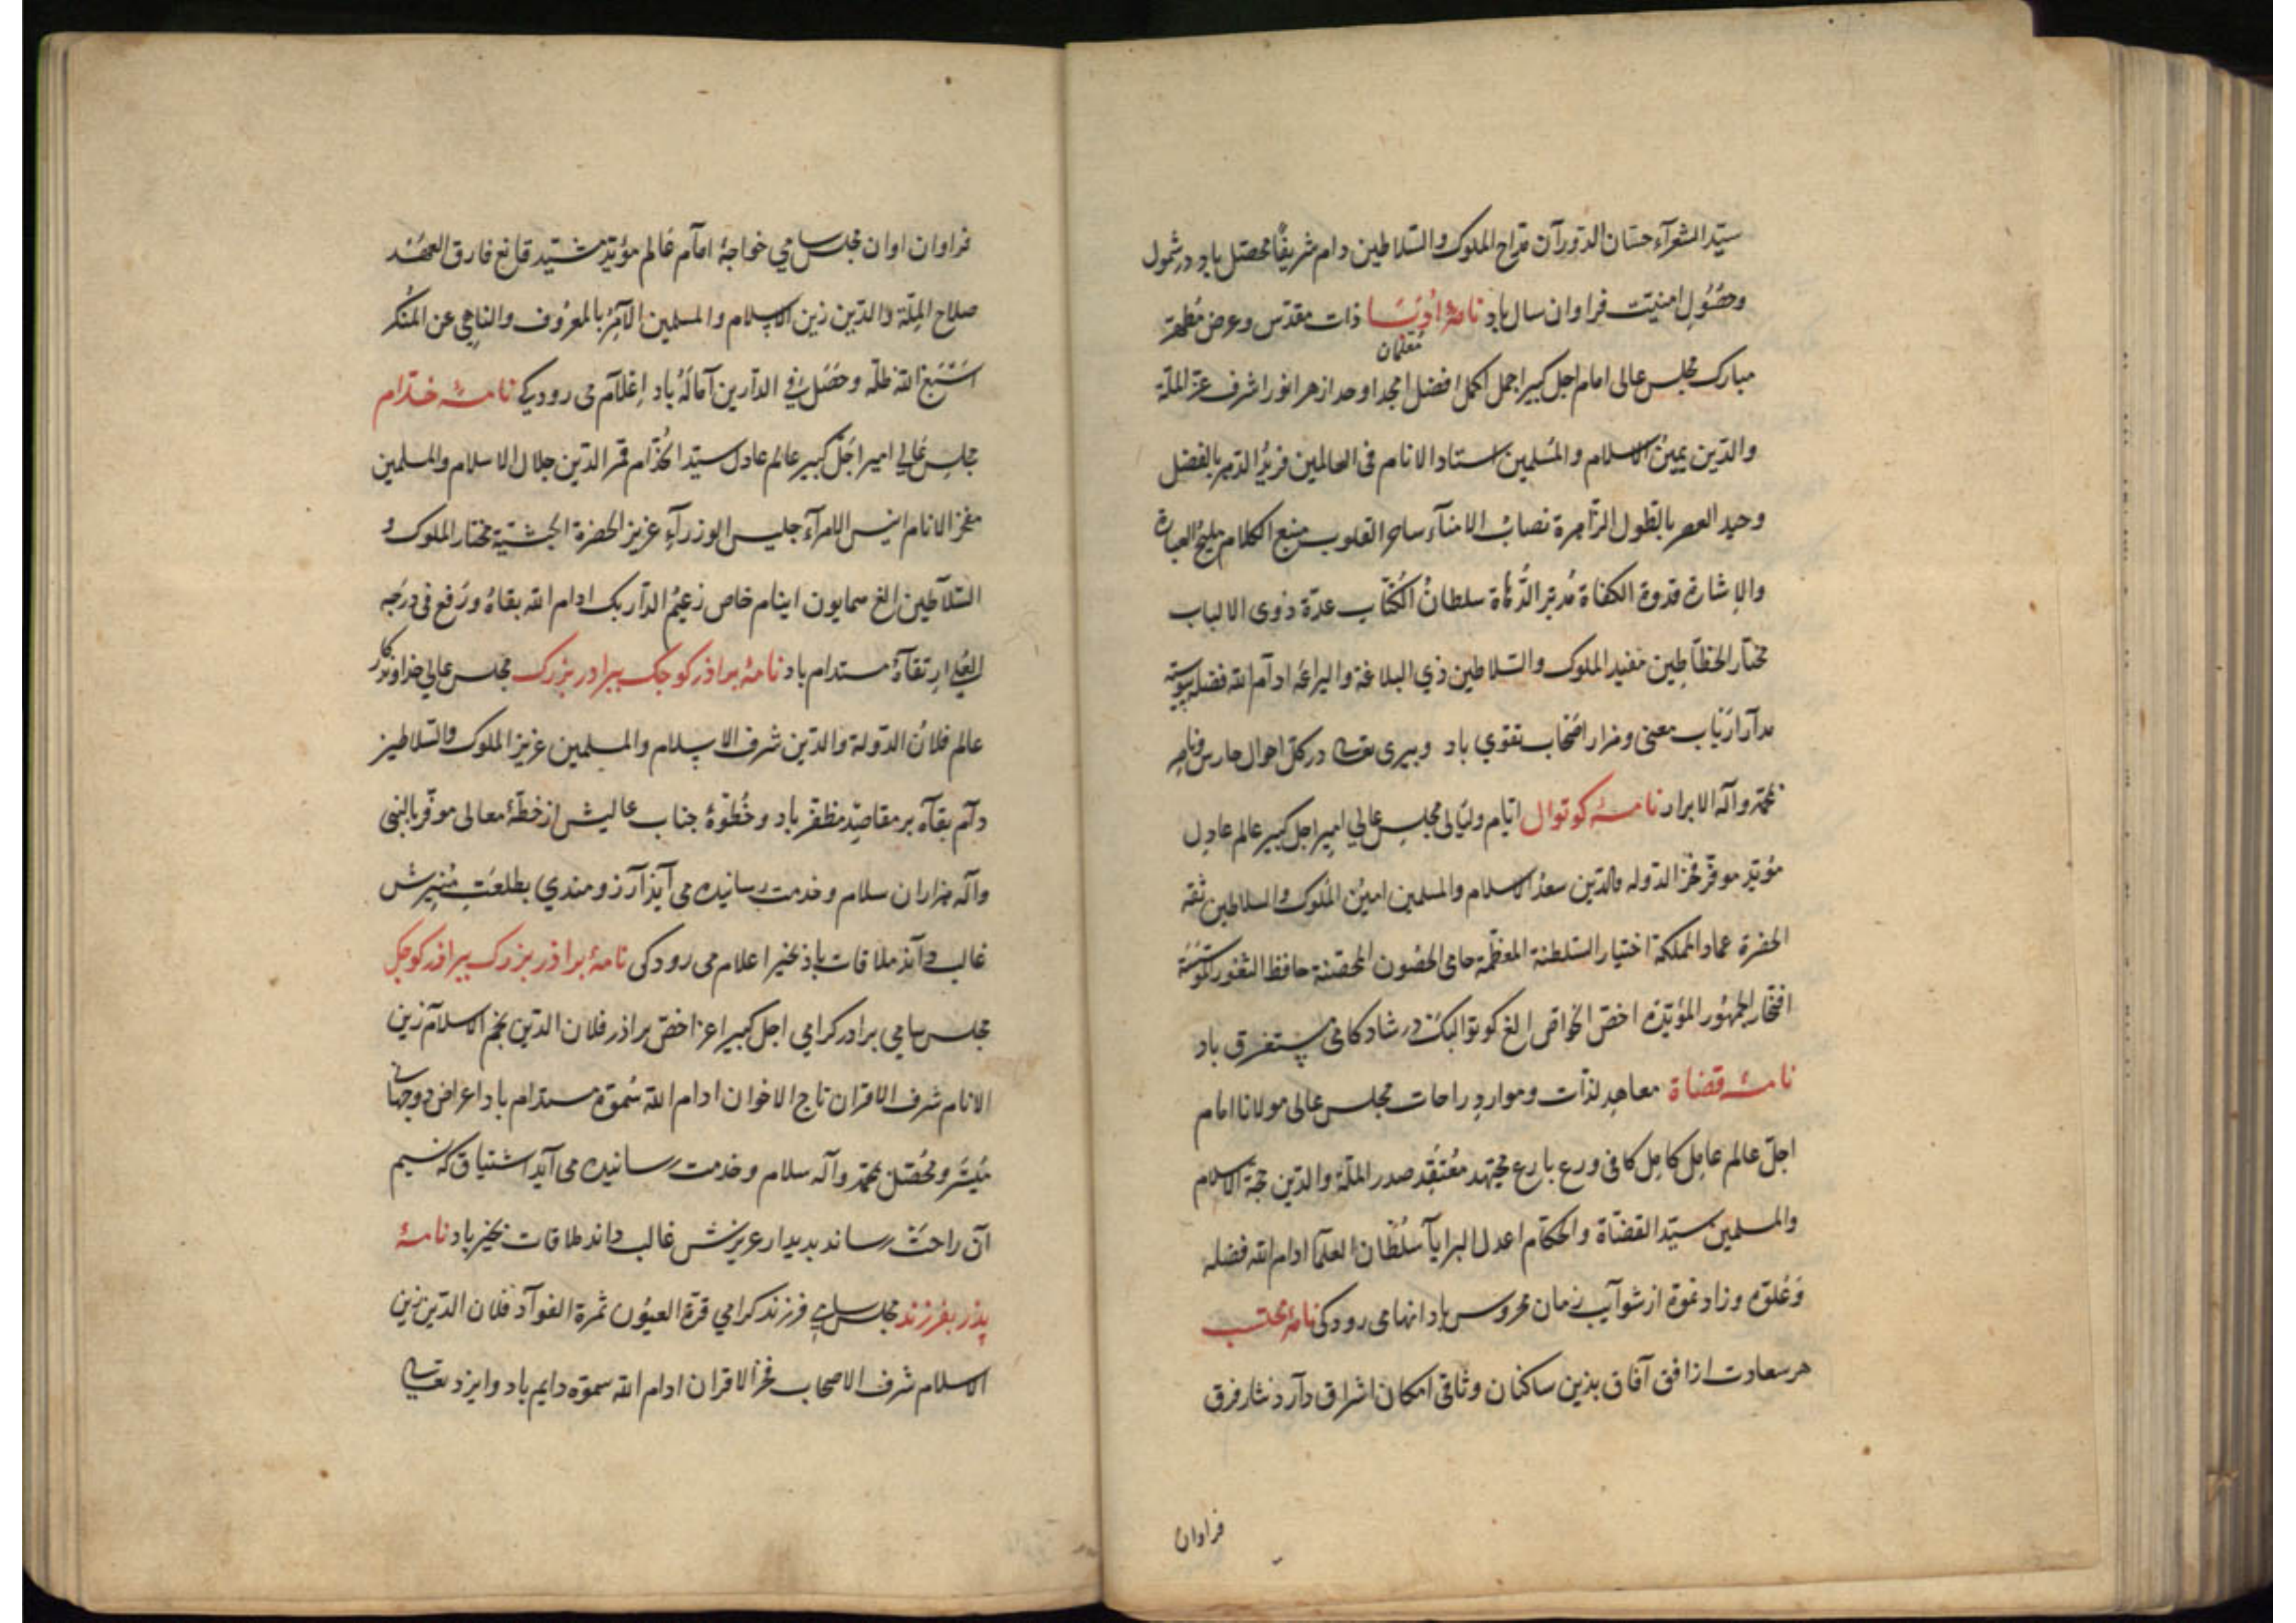 سیّد الشعرآء حسّان الدّورآن مدّاح الملوک والسّلاطین دام شریفًا محصّل باد و در شمول
وحصُولِ امنیّت فراوان سال باد نامۀ اُدَبَا ذات مقدّس وعرض مُطهّر
مُعلمان
مبارک مجلس عالی امام اجل کبیر اجمل اکمل افضل امجد اوحد ازهر انور اشرف عزّ الملّة
والدّین یمینُ الاسلام والمُسلمین استاد الانام فی العالمین فریدُ الدّهر بالفضل
وحید العصر بالطول الزّاهرة نصابُ الامنآء ساحر القلوب منبع الکلام ملیح العبارة
والاِشارة قدوة الکفاة مُدبّر الدُّهاة سلطانُ الکُتّاب عدّة ذوی الالباب
مختار الخطّاطِین مفید الملوک والسّلاطین ذي البلاغة والیراعة ادآم الله فضله پیوسته
مدآر ارَبَاب معنی ومزار اصَحَاب تقوي باد وبیری تعالی در کلّ احوال حارس وناصر
بمحمّد وآله الابراد نامۀ کوتوال ایّام ولیَالی مجلِسِ عالي امیر اجل کبیر عالم عادِل
مؤیّد موقّر فخر الدّوله والدّین سعدُ الاسلام والمسلمین امینُ المُلوک والسلاطین ثقة
الحضرة عماد المملکة اختیار السّلطنة المعظّمة حامی الحصُون المحصّنة حافظ الثغور
افتخار الجمهُور المؤیّدة اخصّ الخواص الغ کوتوالبک در شادکامی مستغرق باد
نامۀ قضاة معاهدِ لذّات ومواردِ راحات مجلس عالی مولانا امام
اجلّ عالم عامِل کامِل کافی ورع بارع مجتهد مُعْتَقِد صدر الملّة والدّین حجّة الاسلام
والمسلمین سیّد القضّاة والحکّام اعدل البرایآ سُلطان العلمآ ادام الله فضله
وَعُلوّه وزاد نموّه از شوآیبِ زمان محروس باد انهامی رود کی نامۀ محتسب
هر سعادت از افق آفاق بذین ساکنان وثاقی امکان اشراق دآرد نثار فرق
فراوان
فراوان اوان مجلس سامي خواجۀ امآم عَالم مؤیّد مشیّد قانع فارق العهْد
صلاح المِلّة والدّین زین الاسلام والمسلمین الآمِرُ بالمعرُوف والناهِی عن المُنکر
اسَْبَغ الله ظلّه وحَصَّل فِي الدآرین آمَالَهُ باد اِعْلآم می رود کی نامۀ خدّام
مجلِسِ عَالي امیر اجَلّ کبیر عالم عادل سیّد الخُدّام قمر الدّین جلال الاسلام والمسلمین
مفخر الانام انیس الامرآء جلیس الوزرآءِ عزیز الحضرة الجشتیة مختار الملوک و
السّلاطین الغ همایون اینام خاص زعیمُ الدّاربک ادام الله بقاهُ ورَفع فی درَجه
العُلی ارتقآهُ مستدام باد نامۀ براذر کوجک ببرادر بزرک مجلس عالي خداوندکار
عالم فلانُ الدّولة والدّین شرف الاسلام والمسلمین عزیز الملوک والسّلاطین
دآم بقآه بر مقاصِد مظفّر باد وخُطوَۀ جناب عالیش از خطّۀ معالی موفّر بالنبی
وآله هزاران سلام وخدمت رسانیده می آیذ آرزومندي بطلعَتِ مُنیرش
غالب دآند ملاقات باذ بخیر اعلام می رود کی نامۀ براذر بزرک ببراذر کوجک
مجلس سامي برادر کرامي اجل کبیر اعز اخصّ براذر فلان الدّین نجم الاسلام زین
الانام شرف الاقران تاج الاخوان ادام الله سُموّه مستدام باد اعراض دوجهانی
مُیسّر ومحُصّل بمحمّد وآله سلام وخدمت رسانیده می آید اشتیاق که نسیم
آن راحَت رساند بدیدار عزیزش غالب داند ملاقات بخیر باد نامۀ
پذر بفرزند مجلس سامي فرزند کرامي قرّة العیُون ثمرة الفوآد فلان الدّین زین
الاسلام شرف الاصحاب فخر الاقران ادام الله سموّه دایم باد وایزد تعالی